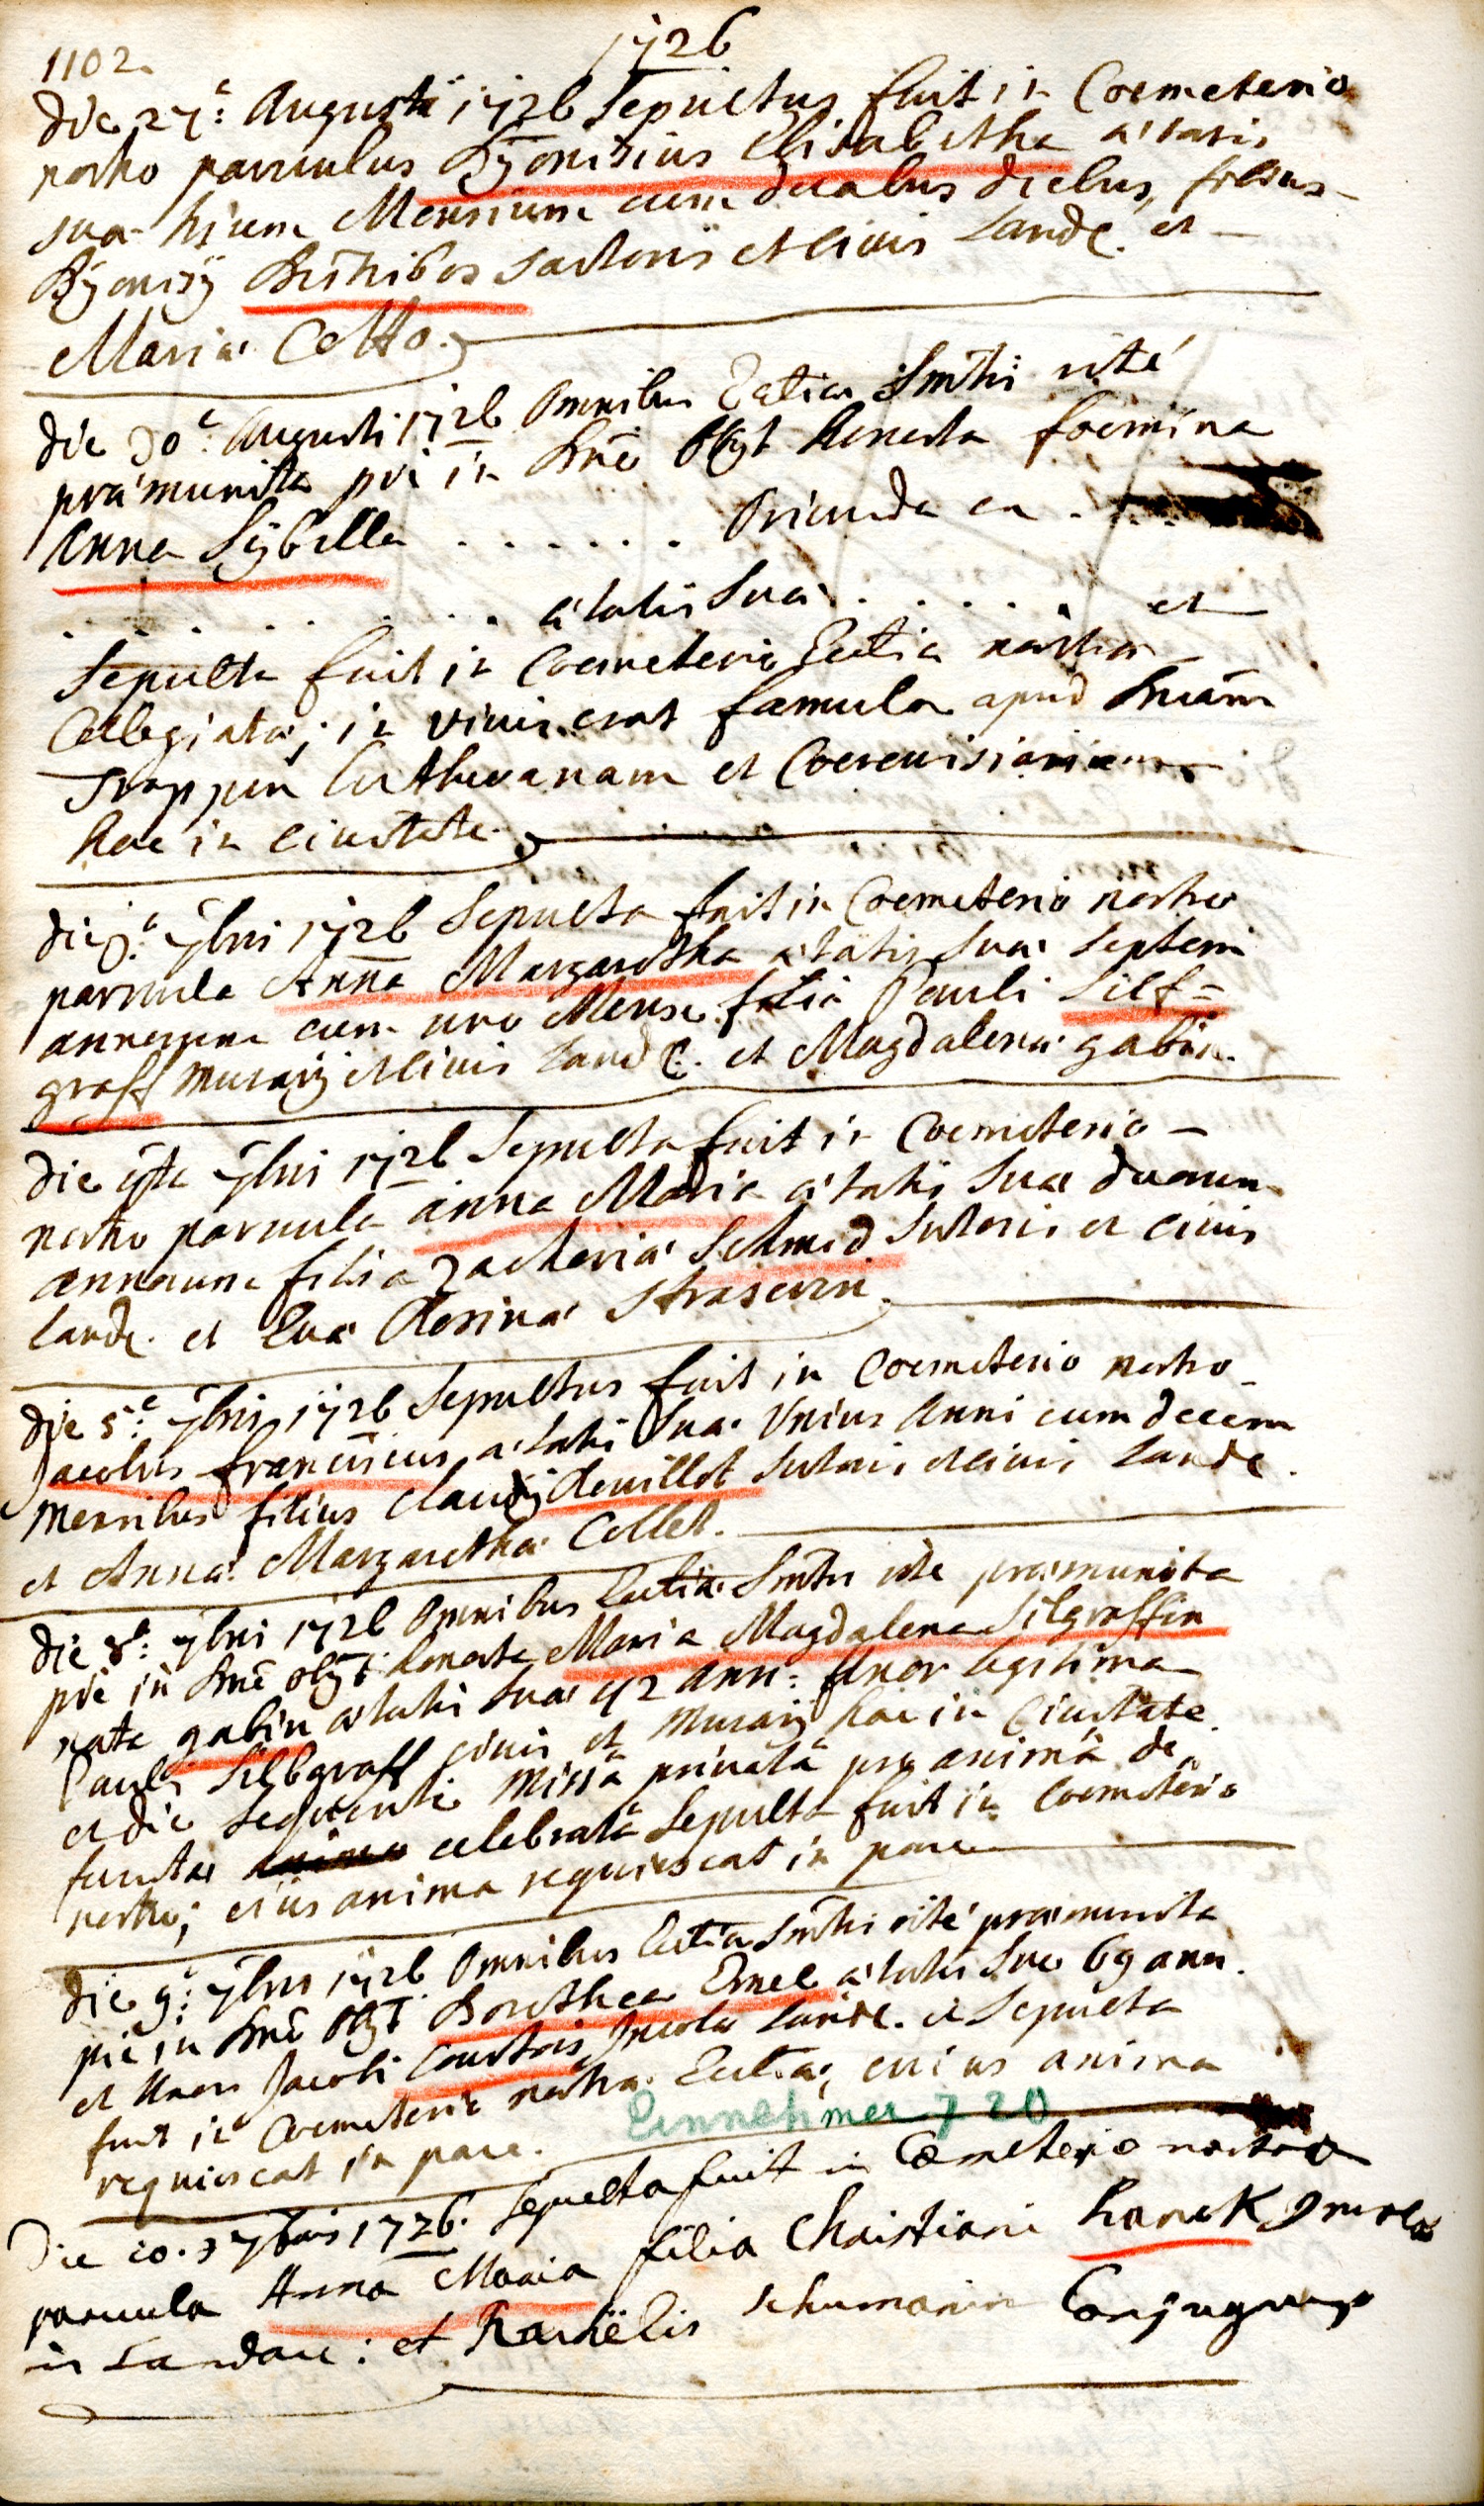 1102.
1726
die 27.a Augusti 1726 Sepultus fuit in Coemeterio
nostro parvulus Dyonisius Elisabetha ætatis
suæ trium Mensium cum duabus diebus, filius
Dyonisij sartoris et civis Land. et
Mariæ Cetto.
die 30.a Augusti 1726 Omnibus Ecctiæ Smtis rité
præmunita piè in Dno Obijt honesta foemina
Anna Sybilla ....... Oriunda ex . . . .
. . . . . . . ætatis Suæ . . . . . et
Sepulta fuit in Coemeterio Ecctiæ nostræ
Collegiatæ; in vivis erat famula apud
Lutheranam et Coerevisiariam
hac in civitate.
die 7bris 1726 Sepulta fuit in Coemeterio nostro
parvula Anna Margaretha ætatis Suæ Septem
annorum cum uno Mense filia Pauli Silf=
graff murarij et civis Land. et Magdalenæ gabin.
die 7bris 1726 Sepulta fuit in Coemeterio
nostro parvula Anna Maria ætatis Suæ duorum
annorum filia Zachariæ Schmid Sutoris et civis
Land. et Evæ Rosinæ Straserin.
die 5.a 7bris 1726 Sepultus fuit in Coemeterio nostro
Jacobus franciscus ætatis Suæ Unius Anni cum decem
Mensibus filius Claudij Rouillot Sutoris et civis Land.
et Annæ Margarethæ Collet.
die 8.a 7bris 1726 Omnibus Ecctiæ Smtis rite præmunita
piè in Dno obijt honesta Maria Magdalena Silgraffin
nata gabin ætatis Suæ 42 ann: Uxor legitima
Pauli Silbgraff civis et Murarij hac in Civitate.
et die sequenti Missâ privatâ pro animâ de
functæ celebratâ Sepulta fuit in Coemeterio
nostro; eius anima requiescat in pace
die 9.a 7bris 1726 Omnibus Ecctiæ Smtis rité præmunita
piè in Dno Obijt Dorothea Emel ætatis Suæ 69 ann.
et Uxor Jacobi Courtois Incolæ Land. et Sepulta
fuit in Coemeterio nostræ Ecctiæ, cuius anima
requiescat in pace.
Einnehmer 720
Die 10. 7bris 1726. Sepulta fuit in Cœmeterio nostro
parvula Anna Maria filia Christiani Hanck Incolæ
in Landau: et Schumanin Conjugum